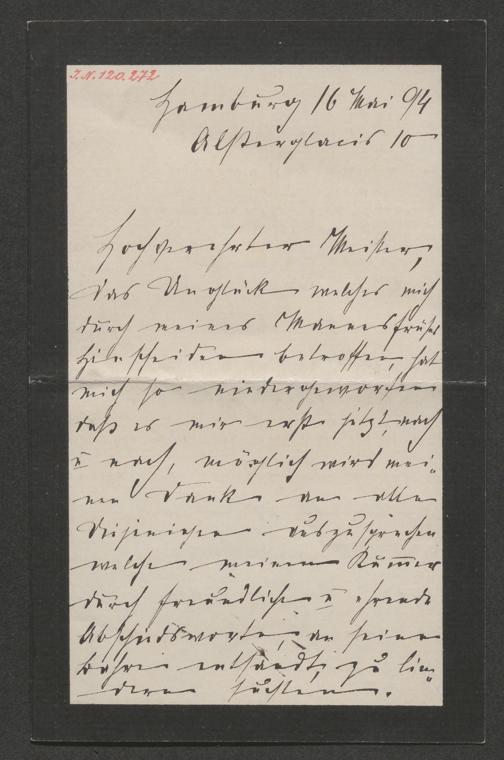 I.N. 120.272
Hamburg 16 Mai 94
Alsterglacis 10
Hochverehrter Meister,
Das Unglück welches mich
durch meines Mannes frühes
Hinscheiden betroffen, hat
mich so niedergeworfen
daß es mir erst jetzt, nach
u nach, möglich wird mei-
nen Dank an alle
Diejenigen auszusprechen
welche meinen Kum̅er
durch freundliche u ehrende
Abschiedsworte, an seine
Bahre entsandt, zu lin-
dern suchten.